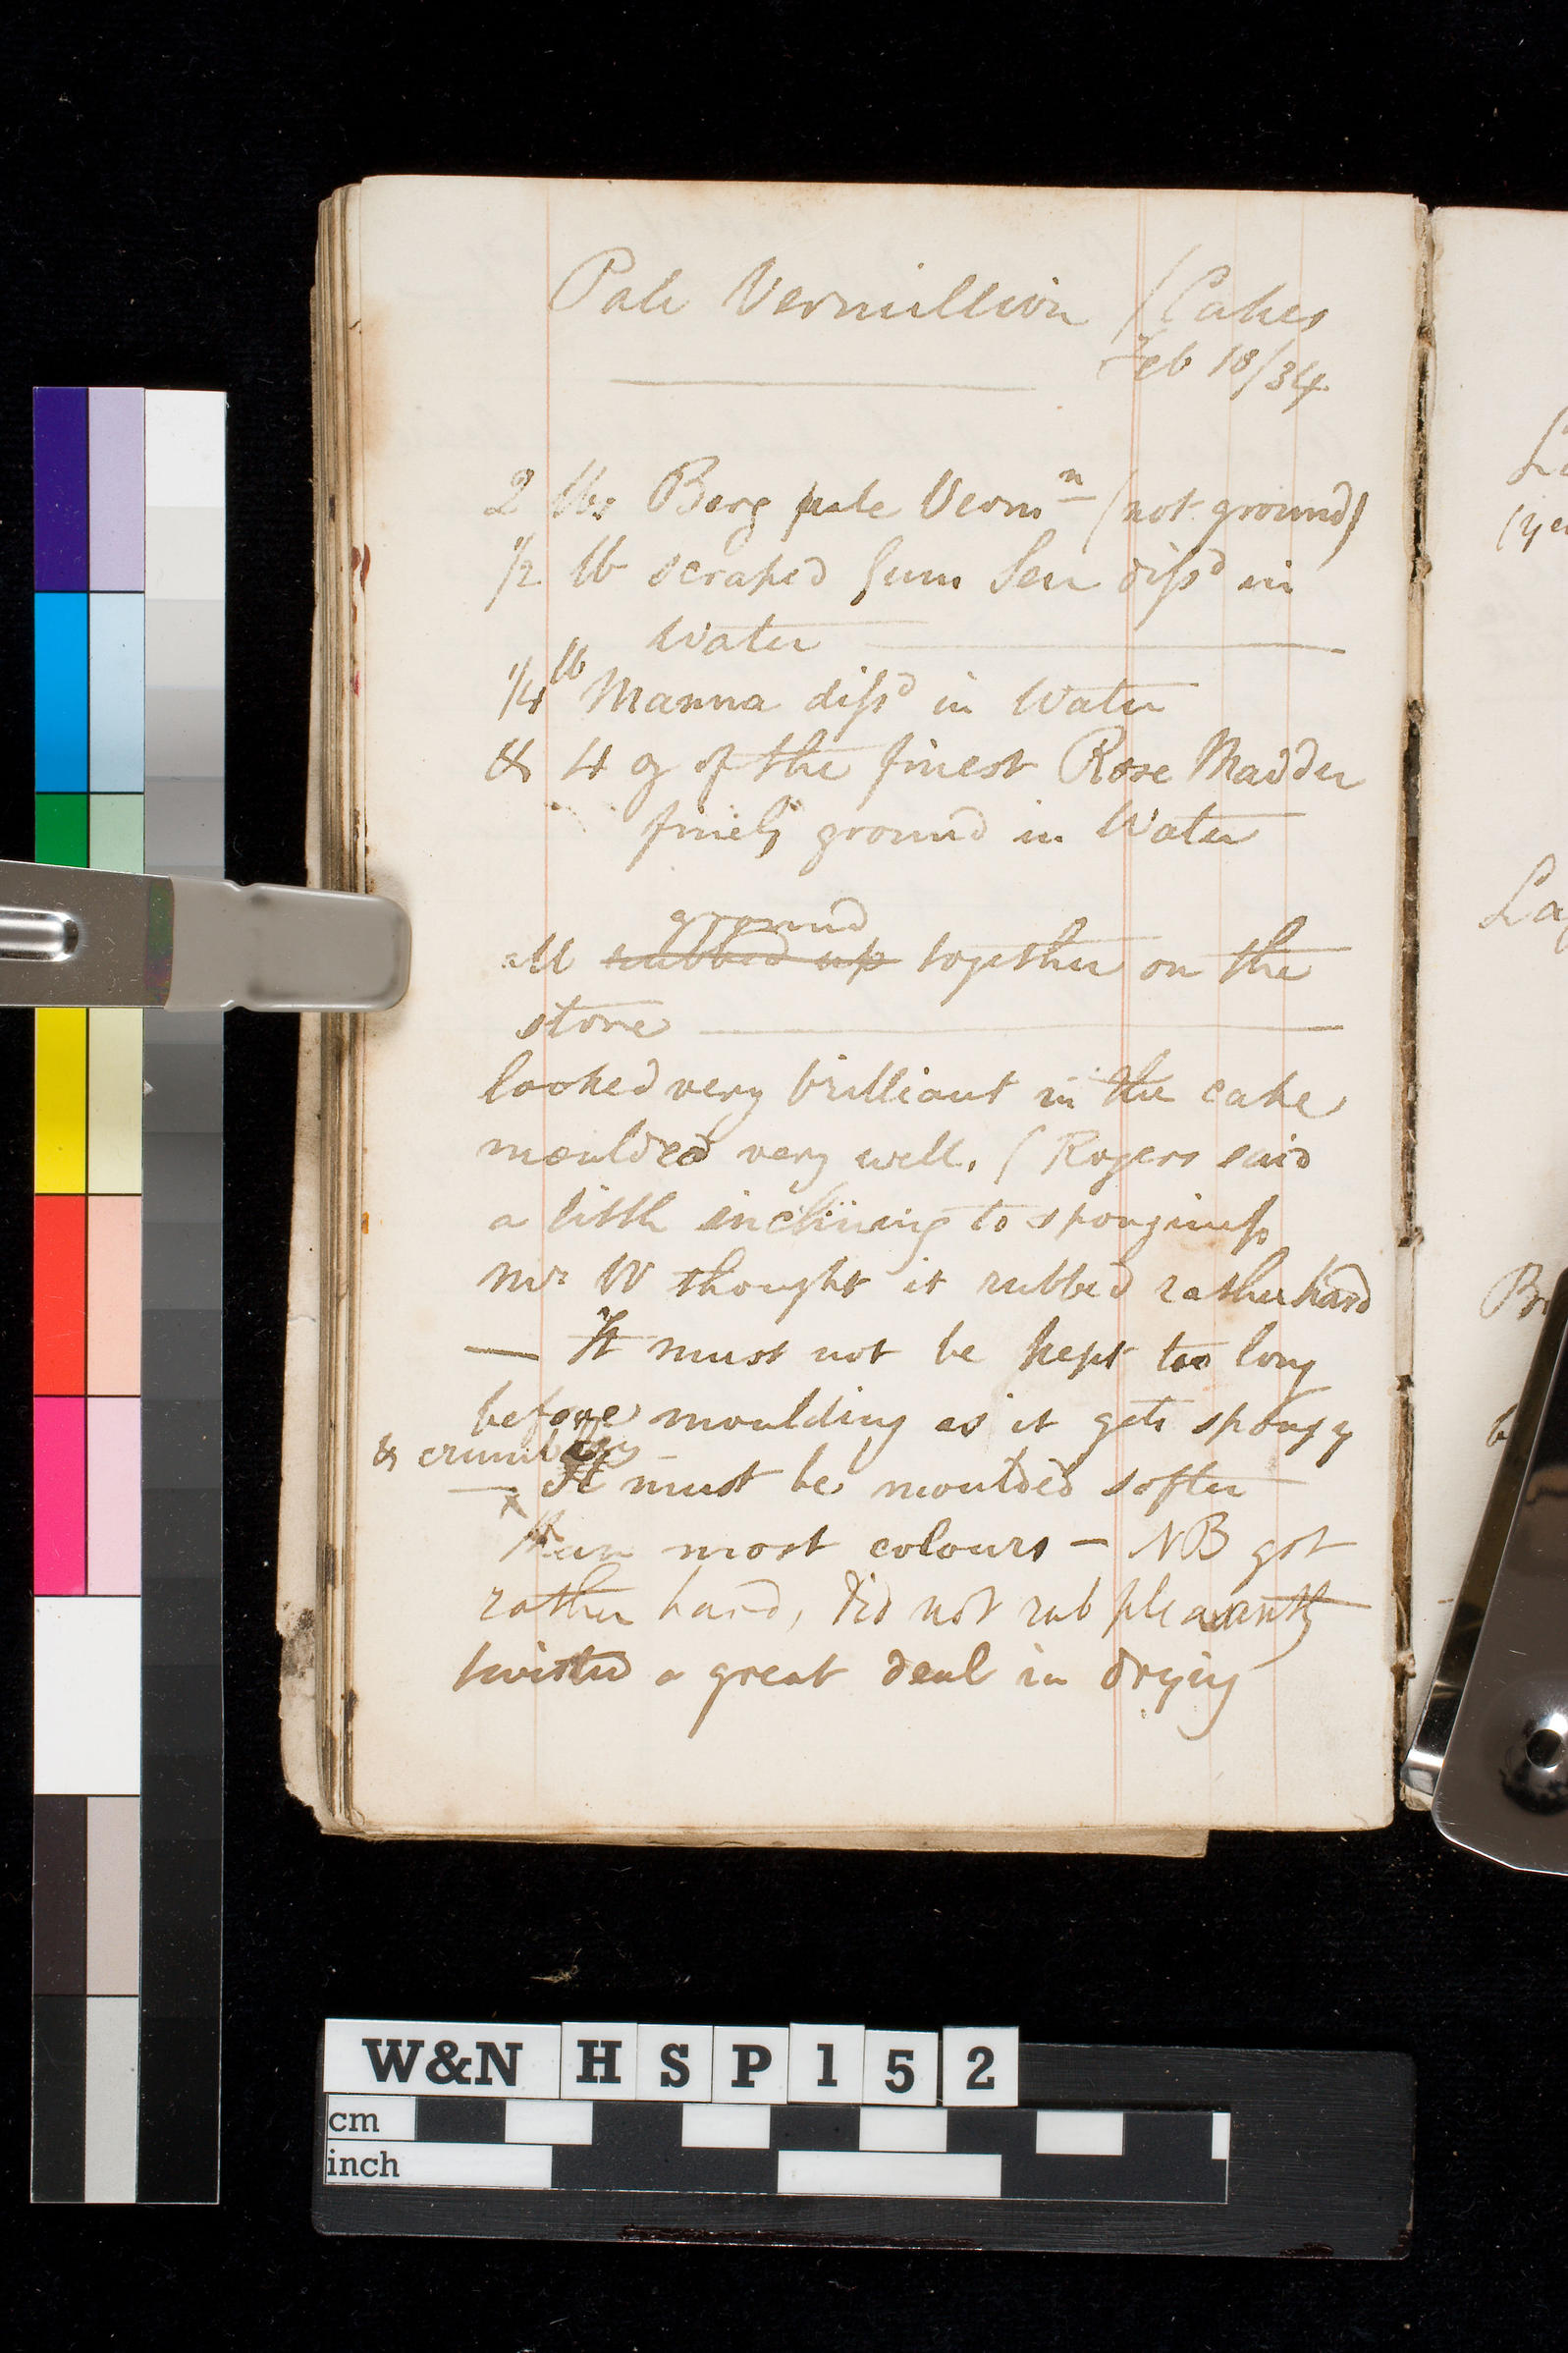 Pale Vermillion / Cakes
Feb 18/34
2 lbs Borg pale Verm<sup>n</sup> (not ground)
1/2 lb scraped Gum Sen diſs<sup>d</sup> in
Water
1/4 lb Manna diſs<sup>d</sup> in Water
& 4 oz of the finest Rose Madder
finely ground in Water
ground
all <s>rubbed up</s> together on the
stone
looked very brilliant in the cake
moulded very well. (Rogers said
a little inclining to sponginess
Mr W thought it rubbed rather hard
— It must not be kept too long
before moulding as it gets spongy
& crumbly
— It must be moulded softer
x
than most colours — NB got
rather hard, did not rub pleasantly
twisted a great deal in drying
La
(ye
La
Br
b
W&N HSP152
cm
inch